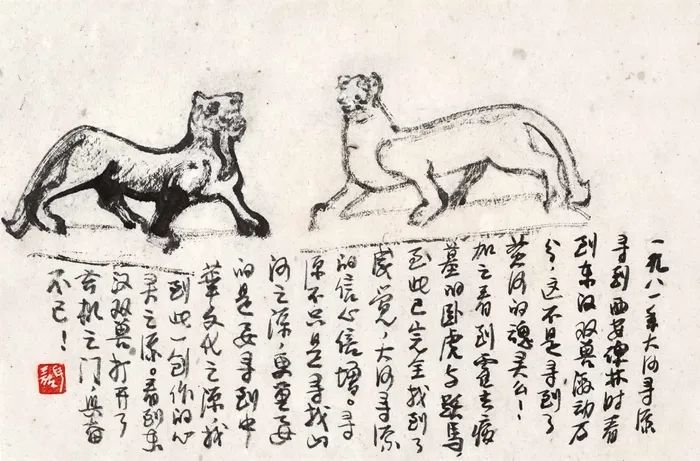 一九八一年大河寻源
寻到西安碑林时看
到东汉双兽激动万
分，这不是寻到了
黄河的魂灵么！
加之看到霍去病
墓的卧虎与跃马，
至此已完全找到了
感觉，大河寻源
的信心倍增。寻
源不只是寻找山
河之源，更重要
的是要寻到中
华文化之源，我
到此一创作的心
灵之源。看到东
汉双兽打开了
玄机之门，兴奋
不已！